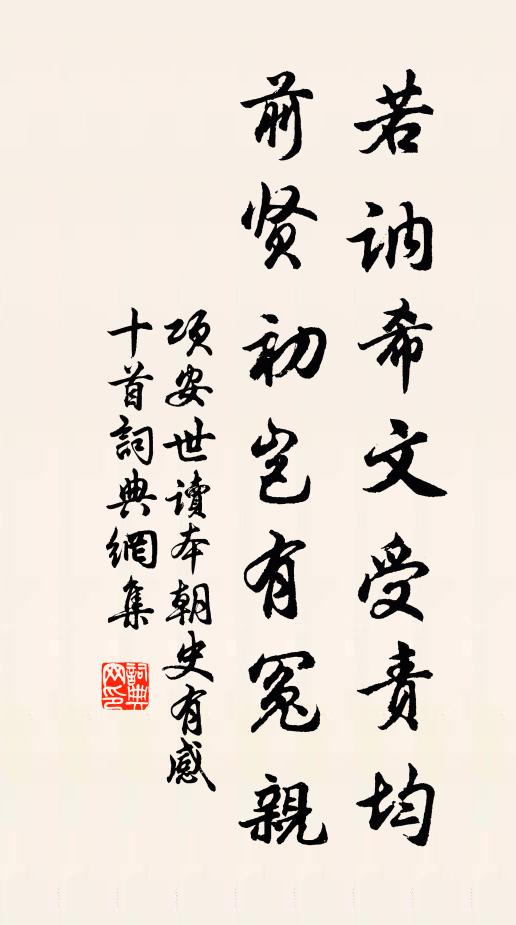 若讷希文受责均
前贤初岂有冤親
项安世讀本朝史有感
十首詞典網集
詞典
网印